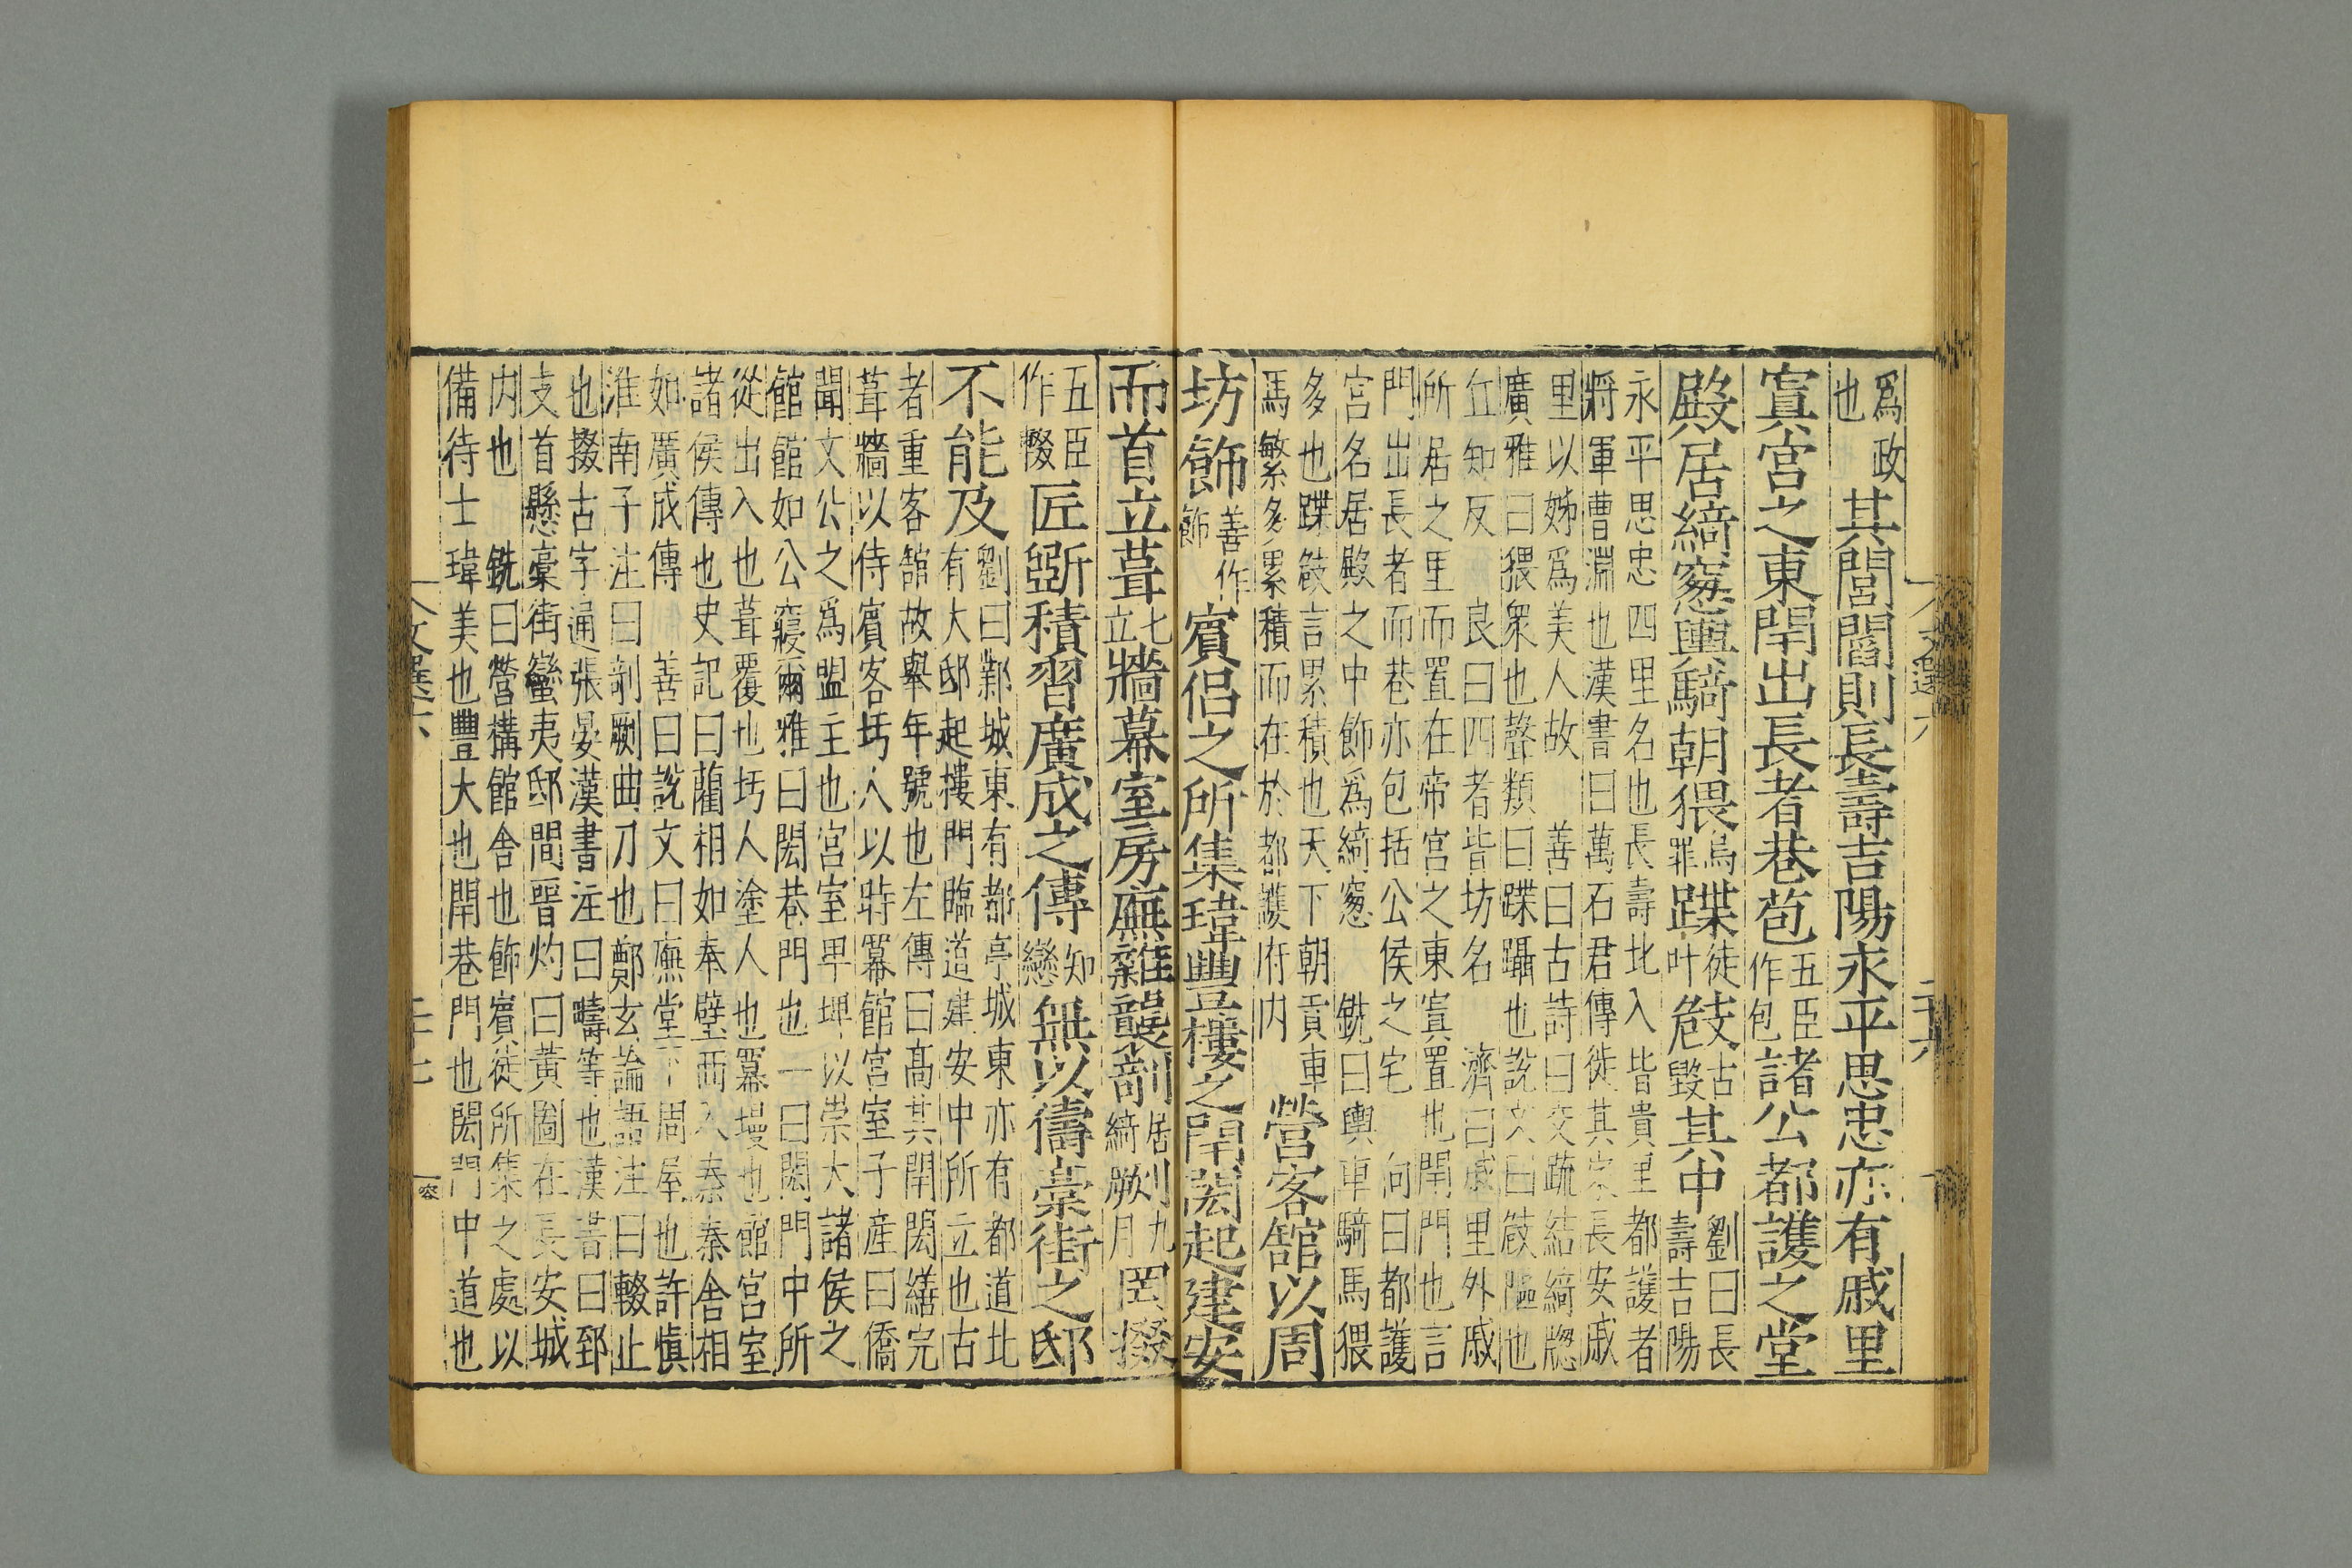 文選六 二十六
爲政
也
其閭閻則長壽吉陽永平思忠亦有戚里
寘宮之東閈出長者巷苞五臣作包諸公都護之堂
殿居綺窻輿騎朝猥烏罪蹀徒叶㩻古毀其中劉曰長
壽吉陽
永平思忠四里名也長壽北入皆貴里都護者
將軍曹淵也漢書曰萬石君傳徙其家長安戚
里以姊爲美人故 善曰古詩曰交䟽結綺牕
廣雅曰猥衆也聲類曰蹀躡也說文曰㩻䧢也
丘知反 良曰四者皆坊名 濟曰戚里外戚
所居之里而置在帝宮之東寘置也閈門也言
門出長者而巷亦包括公侯之宅 向曰都護
宮名居殿之中飾爲綺窻 銑曰輿車騎馬猥
多也蹀㩻言累積也天下朝貢車
馬繁多累積而在於都護府内
營客舘以周
坊飾善作餙賓侶之所集瑋豐樓之閈閎起建安
而首立葺七立牆幕室房廡雜襲剞居綺劂九月罔掇
五臣作輟匠斵積習廣成之傳知戀無以儔槀街之邸
不能及劉曰鄴城東有都亭城東亦有都道北
有大邸起樓門臨道建安中所立也古
者重客舘故舉年號也左傳曰髙其閈閎繕完
葺牆以待賓客圬人以時冪館宮室子産曰僑
聞文公之爲盟主也宮室卑埤以崇大諸侯之
館館如公寢爾雅曰閎巷門也一曰閎門中所
從出入也葺覆也圬人塗人也冪墁也館宮室
諸侯傳也史記曰藺相如奉璧西入秦秦舍相
如廣成傳 善曰說文曰廡堂下周屋也許愼
淮南子注曰剞劂曲刀也鄭玄論語注曰輟止
也掇古字通張晏漢書注曰疇等也漢書曰郅
支首懸槀街蠻夷邸間晉灼曰黃圖在長安城
内也 銑曰營構館舍也飾賓徒所集之處以
備待士瑋美也豐大也閈巷門也閎門中道也
文選六 二十七